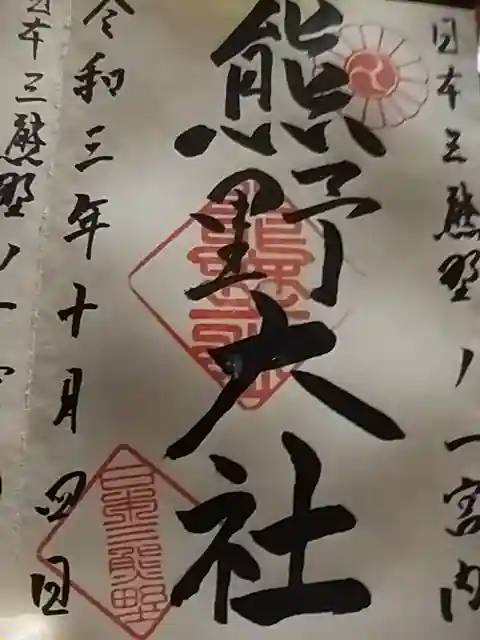 日本三熊野ノ一宮内
熊野大社
令和三年十月四日
日本三熊野
日本三熊野ノ一宮